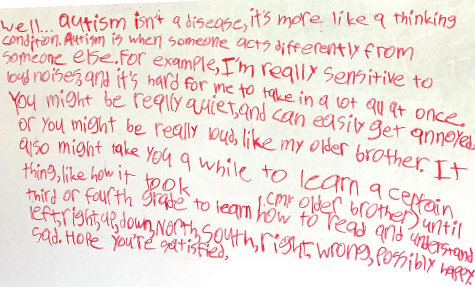 well... autism isn't a disease, it's more like a thinking
condition. Autism is when someone acts differently from
someone else. For example, I'm really sensitive to
loud noises, and it's hard for me to take in a lot all at once.
You might be really quiet, and can easily get annoyed,
or you might be really loud, like my older brother. It
also might take you a while to learn a certain
thing, like how it took (my older brother) until
third or fourth grade to learn how to read and understand
left, right, up, down, North, South, right, wrong, possibly happy,
sad. Hope you're satisfied,